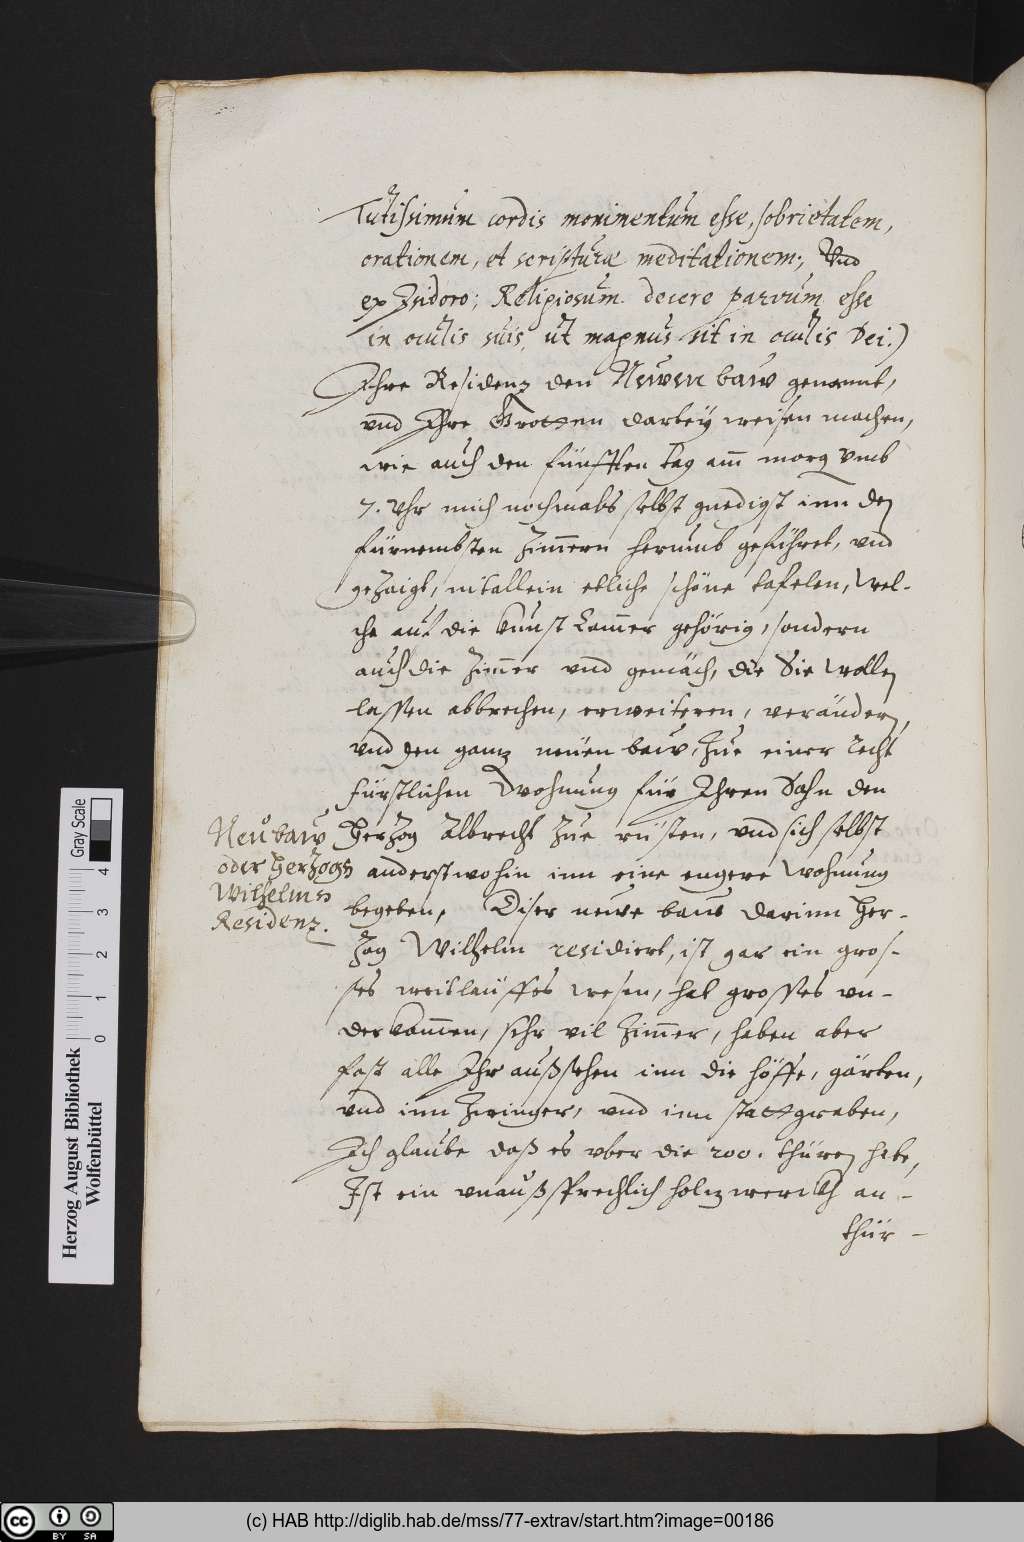 Tutissimum cordis monimentum esse, sobrietatem,
orationem, et scripturae meditationem;, Vnd
ex Isidoro; Religiosum decere parvum esse
in oculis suis, ut magnus sit in oculis Dei.)
Ihre Residenz den Newen baw genannt,
vnd Ihre Grotten darbey weisen machen,
wie auch den fünfften tag am̄ morg vmb
7. Vhr mich nochmals selbst gnedigst inn den
fürnembsten Zim̄ern herumb geführet, vnd
gezaigt, nit allein etliche schöne tafelen, Wel-
che auf die Kunst Cam̄er gehörig, sondern
auch die Zim̄er vnd gemäch, die Sie wollen
lassen abbrechen, erweiteren, verändern,
vnd den ganz neüen baw, Zue einer recht
fürstlichen Wohnung für Ihren Sohn den
Herzog Albrecht Zue rüsten, vnd sich selbst
anderstwohin inn eine engere Wohnung
begeben, Diser newe baw darinn Her-
zog Wilhelm residiert, ist gar ein gros-
ses weitläuffes wesen, hat grosses vn-
derkom̄en, sehr vil Zim̄er, haben aber
fast alle Ihr außsehen inn die höffe, gärten,
vnd inn Zwinger, vnd inn stattgraben,
Ich glaube daß es vber die 200. thüren habe,
Ist ein vnaußsprechlich holzwerckh an
thür-
Neu baw
oder Herzogs
Wilhelms
Residenz.
Herzog August Bibliothek
Wolfenbüttel
Gray Scale
0 1 2 3 4
cc BY SA
(c) HAB http://diglib.hab.de/mss/77-extrav/start.htm?image=00186